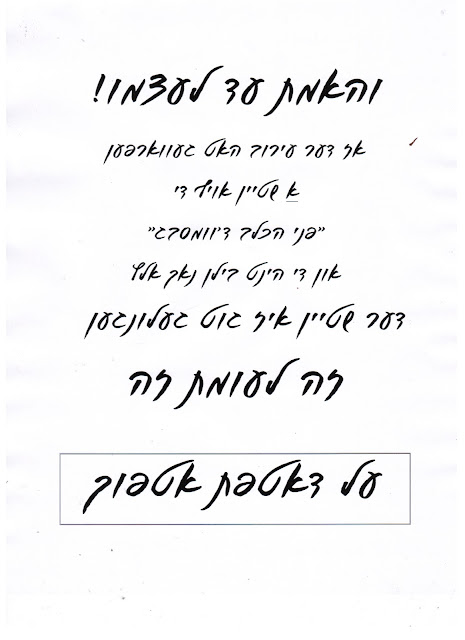 והאמת עד לעצמו!
אז דער עירוב האט געווארפען
א שטיין אויף די
"פני הכלב ד'וומסבג"
און די הינט בילן נאך אלץ
דער שטיין איז גוט געלונגען
זה לעומת זה
על דאטפת אטפוך